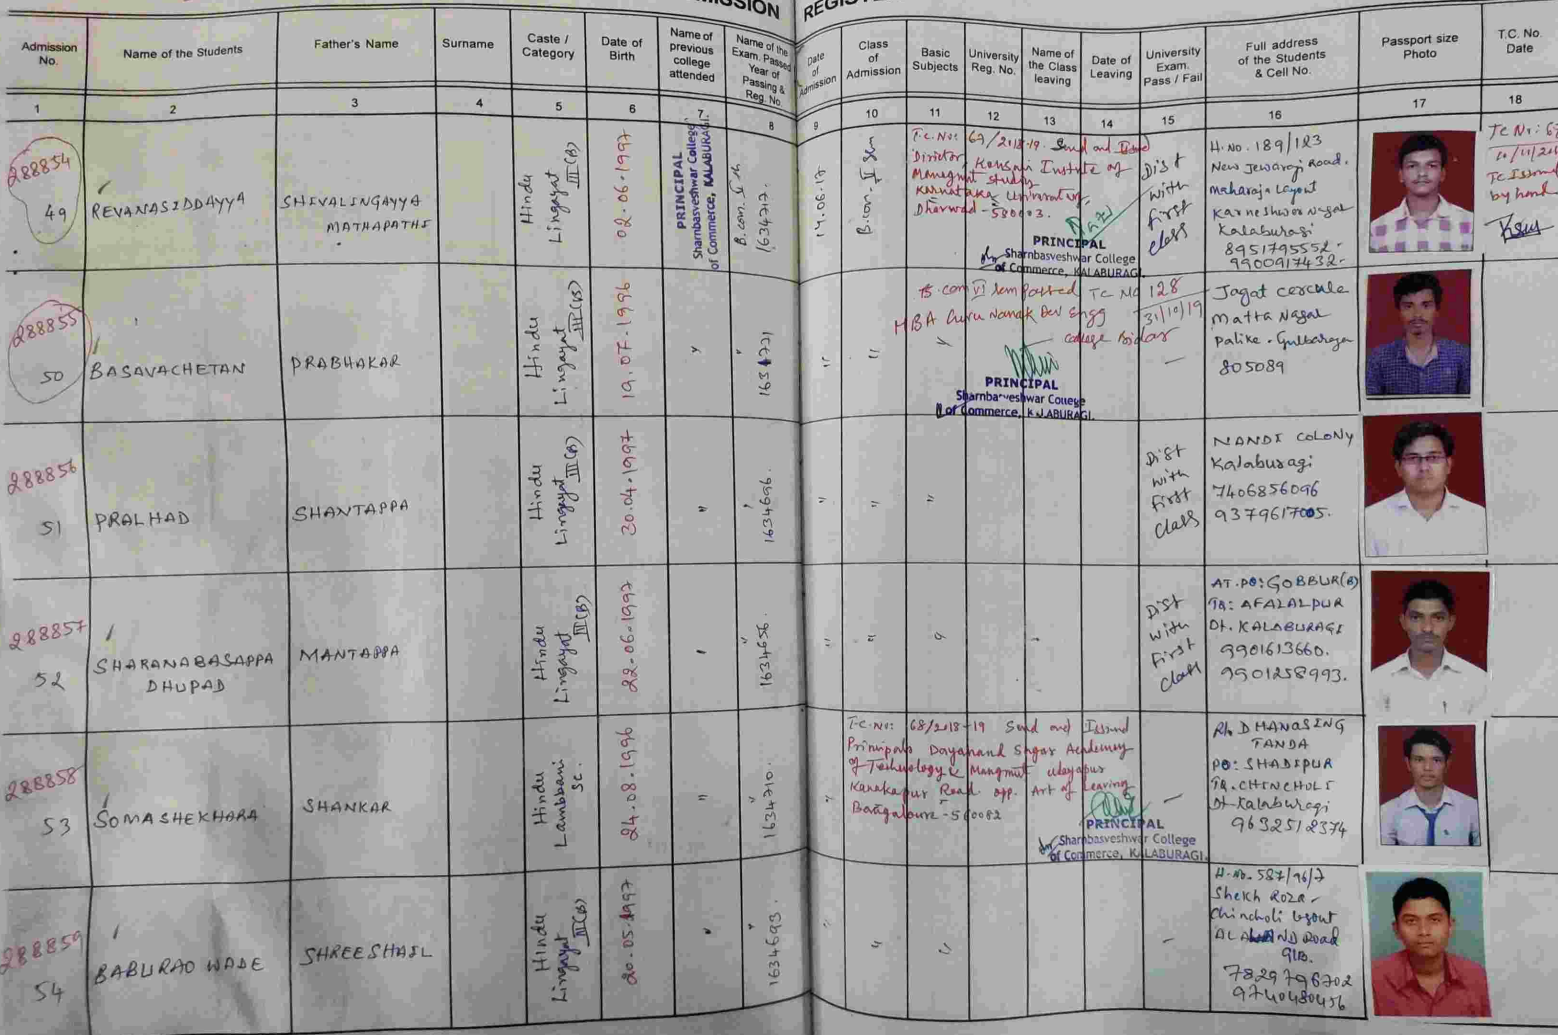 REGISTE
Admission No.
Name of the Students
Father's Name
Surname
Caste / Category
Date of Birth
Name of previous college attended
Name of the Exam. Passed Year of Passing & Reg. No.
Date of Admission
Class of Admission
Basic Subjects
University Reg. No.
Name of the Class leaving
Date of Leaving
University Exam. Pass / Fail
Full address of the Students & Cell No.
Passport size Photo
T.C. No. Date
1 2 3 4 5 6 7 8 9 10 11 12 13 14 15 16 17 18
288854
49
REVANASIDDAYYA
SHIVALINGAYYA
MATHAPATHI
Hindu
Lingayat III(B)
02.06.1997
PRINCIPAL
Sharnbasveshwar College
of Commerce, KALABURAGI.
B.com. V th
1634717.
14.06.17
B.com. V Sem
T.C. No: 67/2018-19. Send and Issued
Director, Kousali Institute of
Managmt study
Karnataka University
Dharwad-580003.
PRINCIPAL
Sharnbasveshwar College
of Commerce, KALABURAGI.
Dist
with
first
class
H.NO. 189/123
New Jewaragi Road.
Maharaja Layout
Karneshwar Nagar
Kalaburagi
8951795552-
9900917432-
TC No: 67
TC Issued
by hand
288855
50
BASAVACHETAN
PRABHAKAR
Hindu
Lingayat III(B)
19.07.1996
B.com VI Sem passed TC NO 128
31/10/19
MBA Guru Nanak Dev Engg
college Bidar
PRINCIPAL
Sharnbasveshwar College
of Commerce, KALABURAGI.
—
Jagat cercule
Matta Nagar
Palike. Gulbarga
805089
288856
51
PRALHAD
SHANTAPPA
Hindu
Lingayat III(B)
30.04.1997
〃
1634696.
〃
〃
〃
Dist
with
First
class
NANDI COLONY
Kalaburagi
7406856096
9379617005.
288857
52
SHARANABASAPPA
DHUPAD
MANTAPPA
Hindu
Lingayat III(B)
22-06-1997
1634656.
〃
〃
Dist
with
First
class
AT.PO: GOBBUR(B)
TQ: AFALALPUR
Dt. KALABURAGI
9901613660.
9901258993.
288858
53
SOMASHEKHARA
SHANKAR
Hindu
Lambbani
SC.
24.08.1996
〃
1634710.
〃
T.C. No: 68/2018-19 Send and Issued
Principals Dayanand Sagar Academy
of Technology & Mangmut udayapur
Kanakapur Road. opp. Art of Leaving
Bangaloure-560082
PRINCIPAL
Sharnbasveshwar College
of Commerce, KALABURAGI.
—
R/o DHANASING
TANDA
PO: SHADIPUR
TQ. CHINCHOLI
Dt-Kalaburagi
9632512374
288859
54
BABURAO WADE
SHREESHAIL
Hindu
Lingayat III(B)
20.05.1997
1634693.
〃
〃
〃
—
H.No. 587/96/7
Shekh Roza-
Chincholi Layout
Road
GLB.
7829796702
9740480456